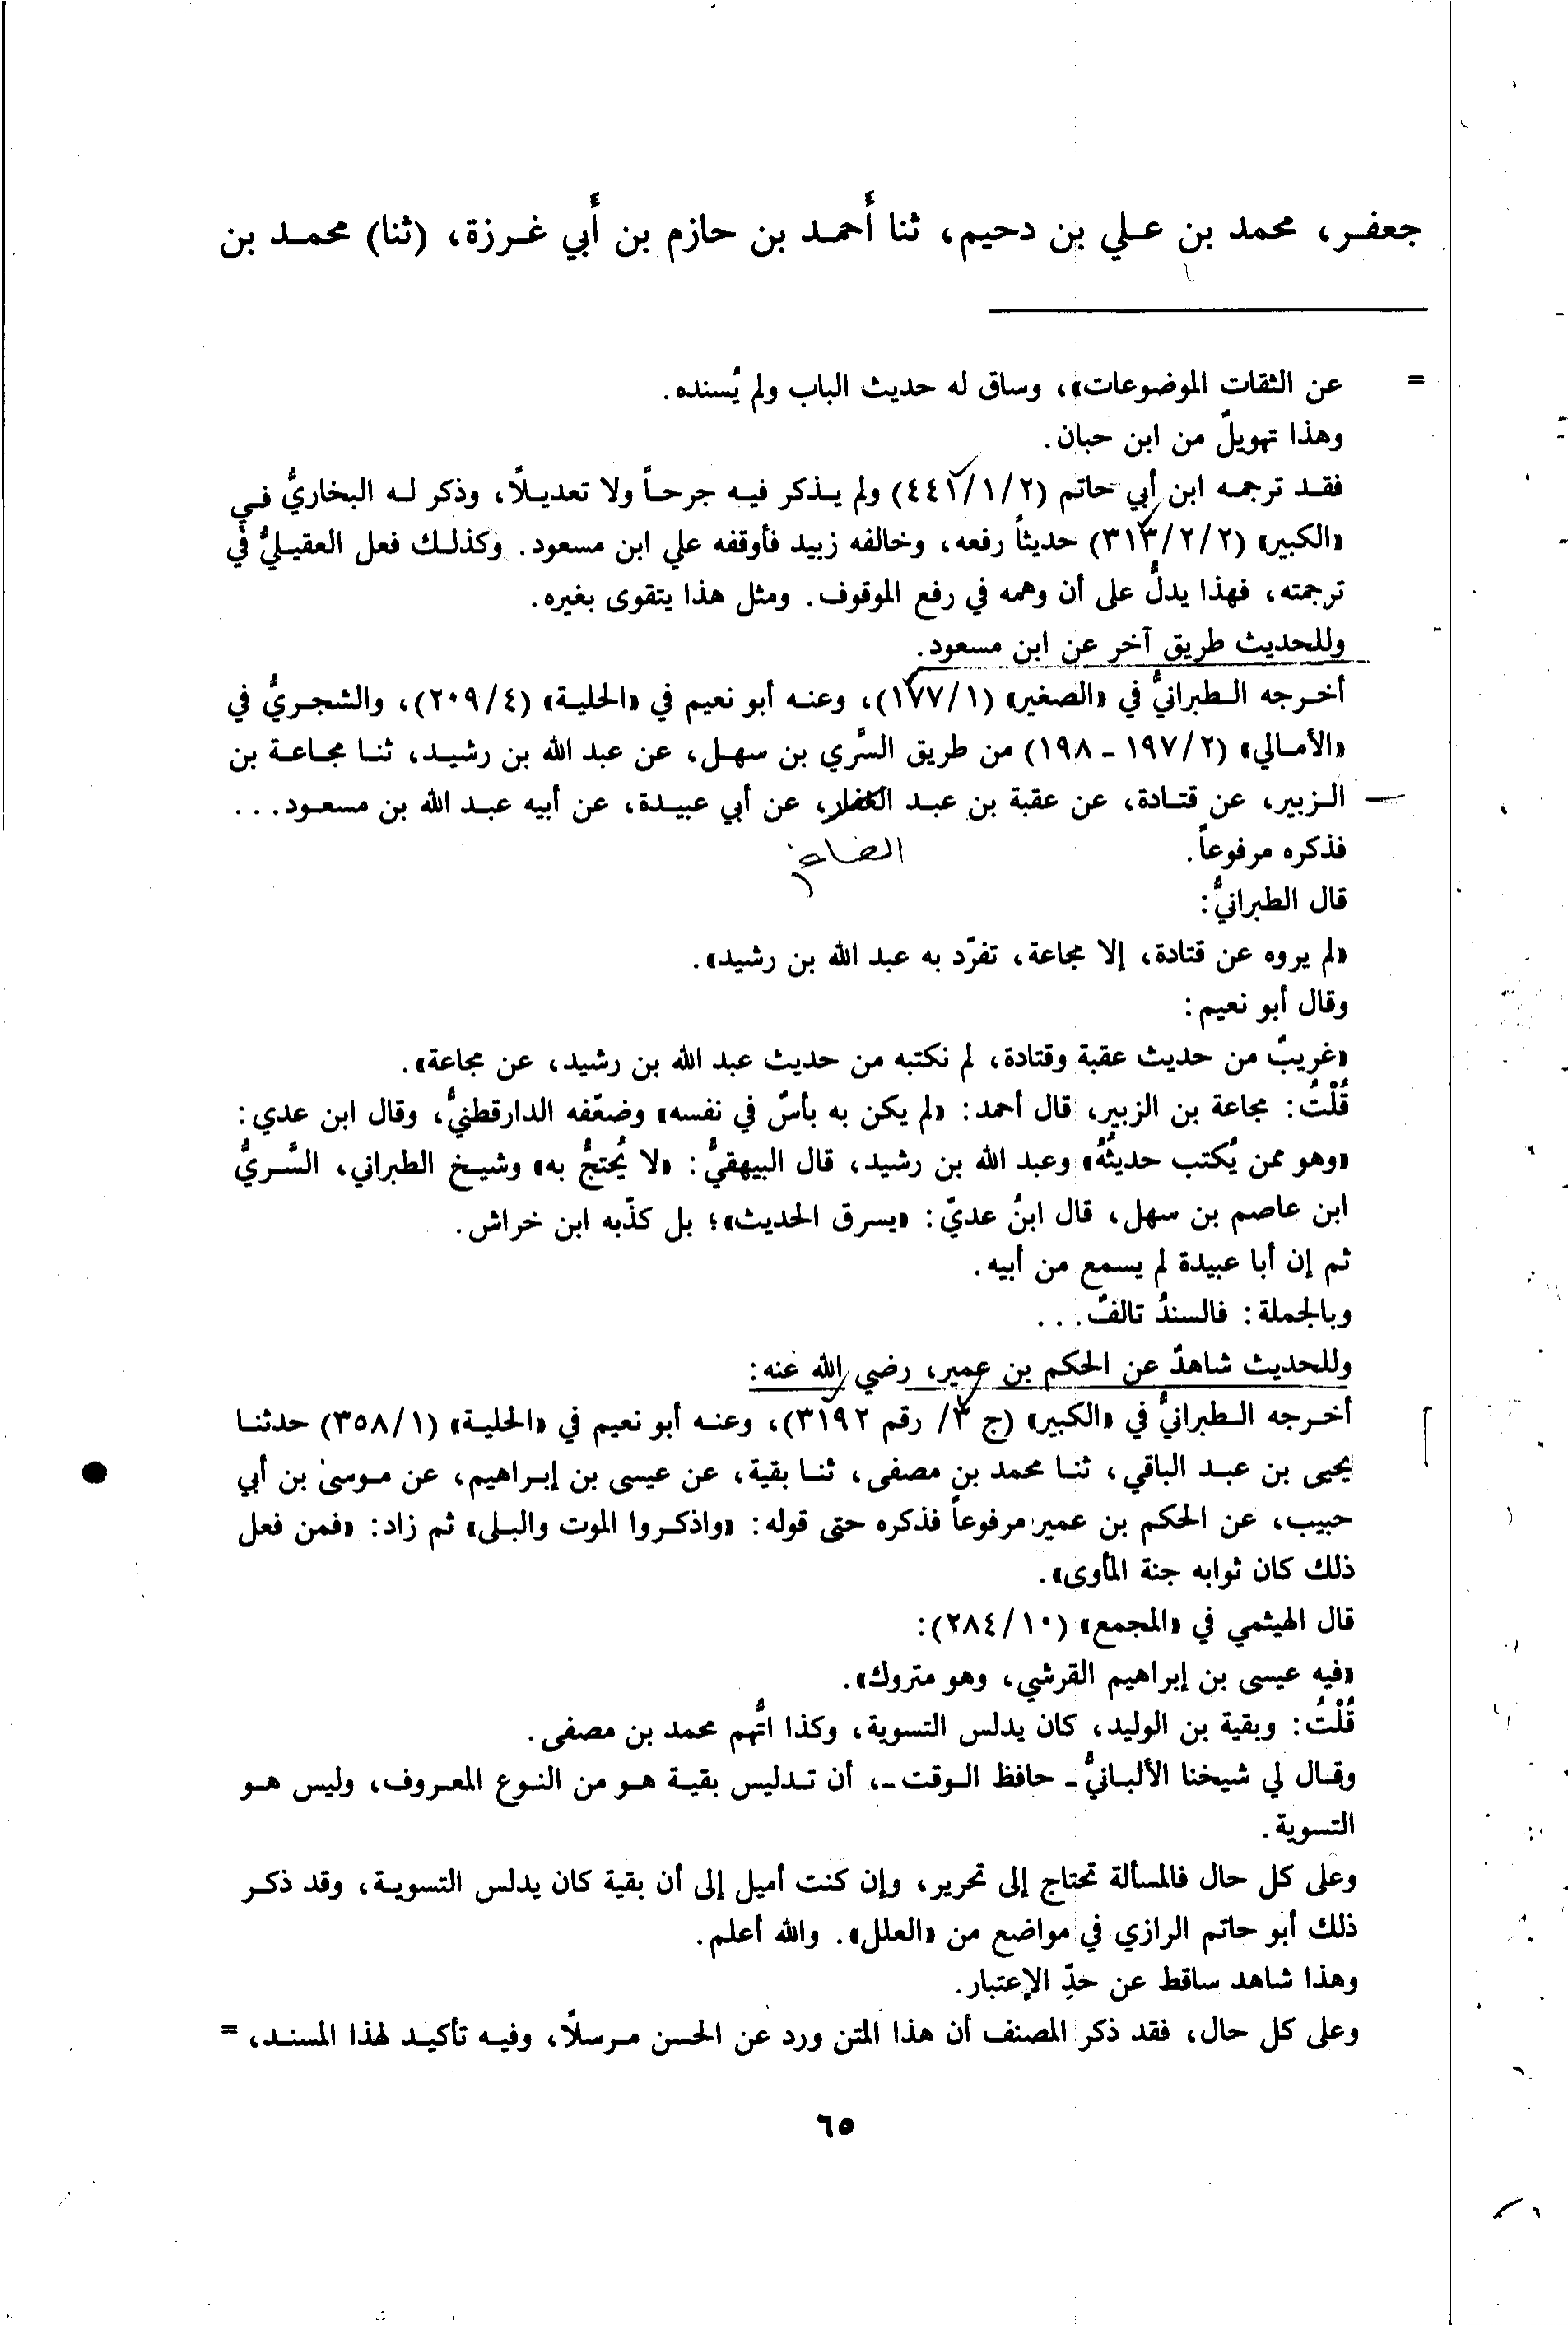 جعفر، محمد بن علي بن دحيم، ثنا أَحمد بن حازم بن أَبي غرزة، (ثنا) محمد بن
= عن الثقات الموضوعات»، وساق له حديث الباب ولم يُسنده.
وهذا تهويلٌ من ابن حبان.
فقد ترجمه ابن أبي حاتم (٤٤١/١/٢) ولم يذكر فيه جرحاً ولا تعديلًا، وذكر له البخاريُّ في
«الكبير» (٣١٣/٢/٢) حديثاً رفعه، وخالفه زبيد فأوقفه علي ابن مسعود. وكذلك فعل العقيليُّ في
ترجمته، فهذا يدلُّ على أن وهمه في رفع الموقوف. ومثل هذا يتقوى بغيره.
وللحديث طريق آخر عن ابن مسعود.
أخرجه الطبرانيُّ في «الصغير» (١٧٧/١)، وعنه أبو نعيم في «الحلية» (٢٠٩/٤)، والشجريُّ في
«الأمالي» (١٩٧/٢ - ١٩٨) من طريق السَّري بن سهل، عن عبد الله بن رشيد، ثنا مجاعة بن
الزبير، عن قتادة، عن عقبة بن عبد الغفار، عن أبي عبيدة، عن أبيه عبد الله بن مسعود...
فذكره مرفوعاً.
قال الطبرانيُّ:
«لم يروه عن قتادة، إلا مجاعة، تفرّد به عبد الله بن رشيد».
وقال أبو نعيم:
«غريبٌ من حديث عقبة وقتادة، لم نكتبه من حديث عبد الله بن رشيد، عن مجاعة».
قُلْتُ: مجاعة بن الزبير، قال أحمد: «لم يكن به بأسٌ في نفسه» وضعّفه الدارقطنيُّ، وقال ابن عدي:
«وهو ممن يُكتب حديثُهُ» وعبد الله بن رشيد، قال البيهقيُّ: «لا يُحتجُّ به» وشيخ الطبراني، السَّريُّ
ابن عاصم بن سهل، قال ابنُ عديّ: «يسرق الحديث»؛ بل كذّبه ابن خراش.
ثم إن أبا عبيدة لم يسمع من أبيه.
وبالجملة: فالسندُ تالفٌ...
وللحديث شاهدٌ عن الحكم بن عمير، رضي الله عنه:
أخرجه الطبرانيُّ في «الكبير» (ج ٣/ رقم ٣١٩٢)، وعنه أبو نعيم في «الحلية» (٣٥٨/١) حدثنا
يحيى بن عبد الباقي، ثنا محمد بن مصفى، ثنا بقية، عن عيسى بن إبراهيم، عن موسىٰ بن أبي
حبيب، عن الحكم بن عمير مرفوعاً فذكره حتى قوله: «واذكروا الموت والبلى» ثم زاد: «فمن فعل
ذلك كان ثوابه جنة المأوى».
قال الهيثمي في «المجمع» (٢٨٤/١٠):
«فيه عيسى بن إبراهيم القرشي، وهو متروك».
قُلْتُ: وبقية بن الوليد، كان يدلس التسوية، وكذا اتُّهم محمد بن مصفى.
وقال لي شيخنا الألبانيُّ - حافظ الوقت -، أن تدليس بقية هو من النوع المعروف، وليس هو
التسوية.
وعلى كل حال فالمسألة تحتاج إلى تحرير، وإن كنت أميل إلى أن بقية كان يدلس التسوية، وقد ذكر
ذلك أبو حاتم الرازي في مواضع من «العلل». والله أعلم.
وهذا شاهد ساقط عن حدِّ الإعتبار.
وعلى كل حال، فقد ذكر المصنف أن هذا المتن ورد عن الحسن مرسلًا، وفيه تأكيد لهذا المسند، =
٦٥